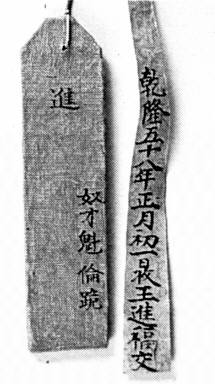 乾隆五十八年正月初一 王進福交
奴才魁倫跪
進